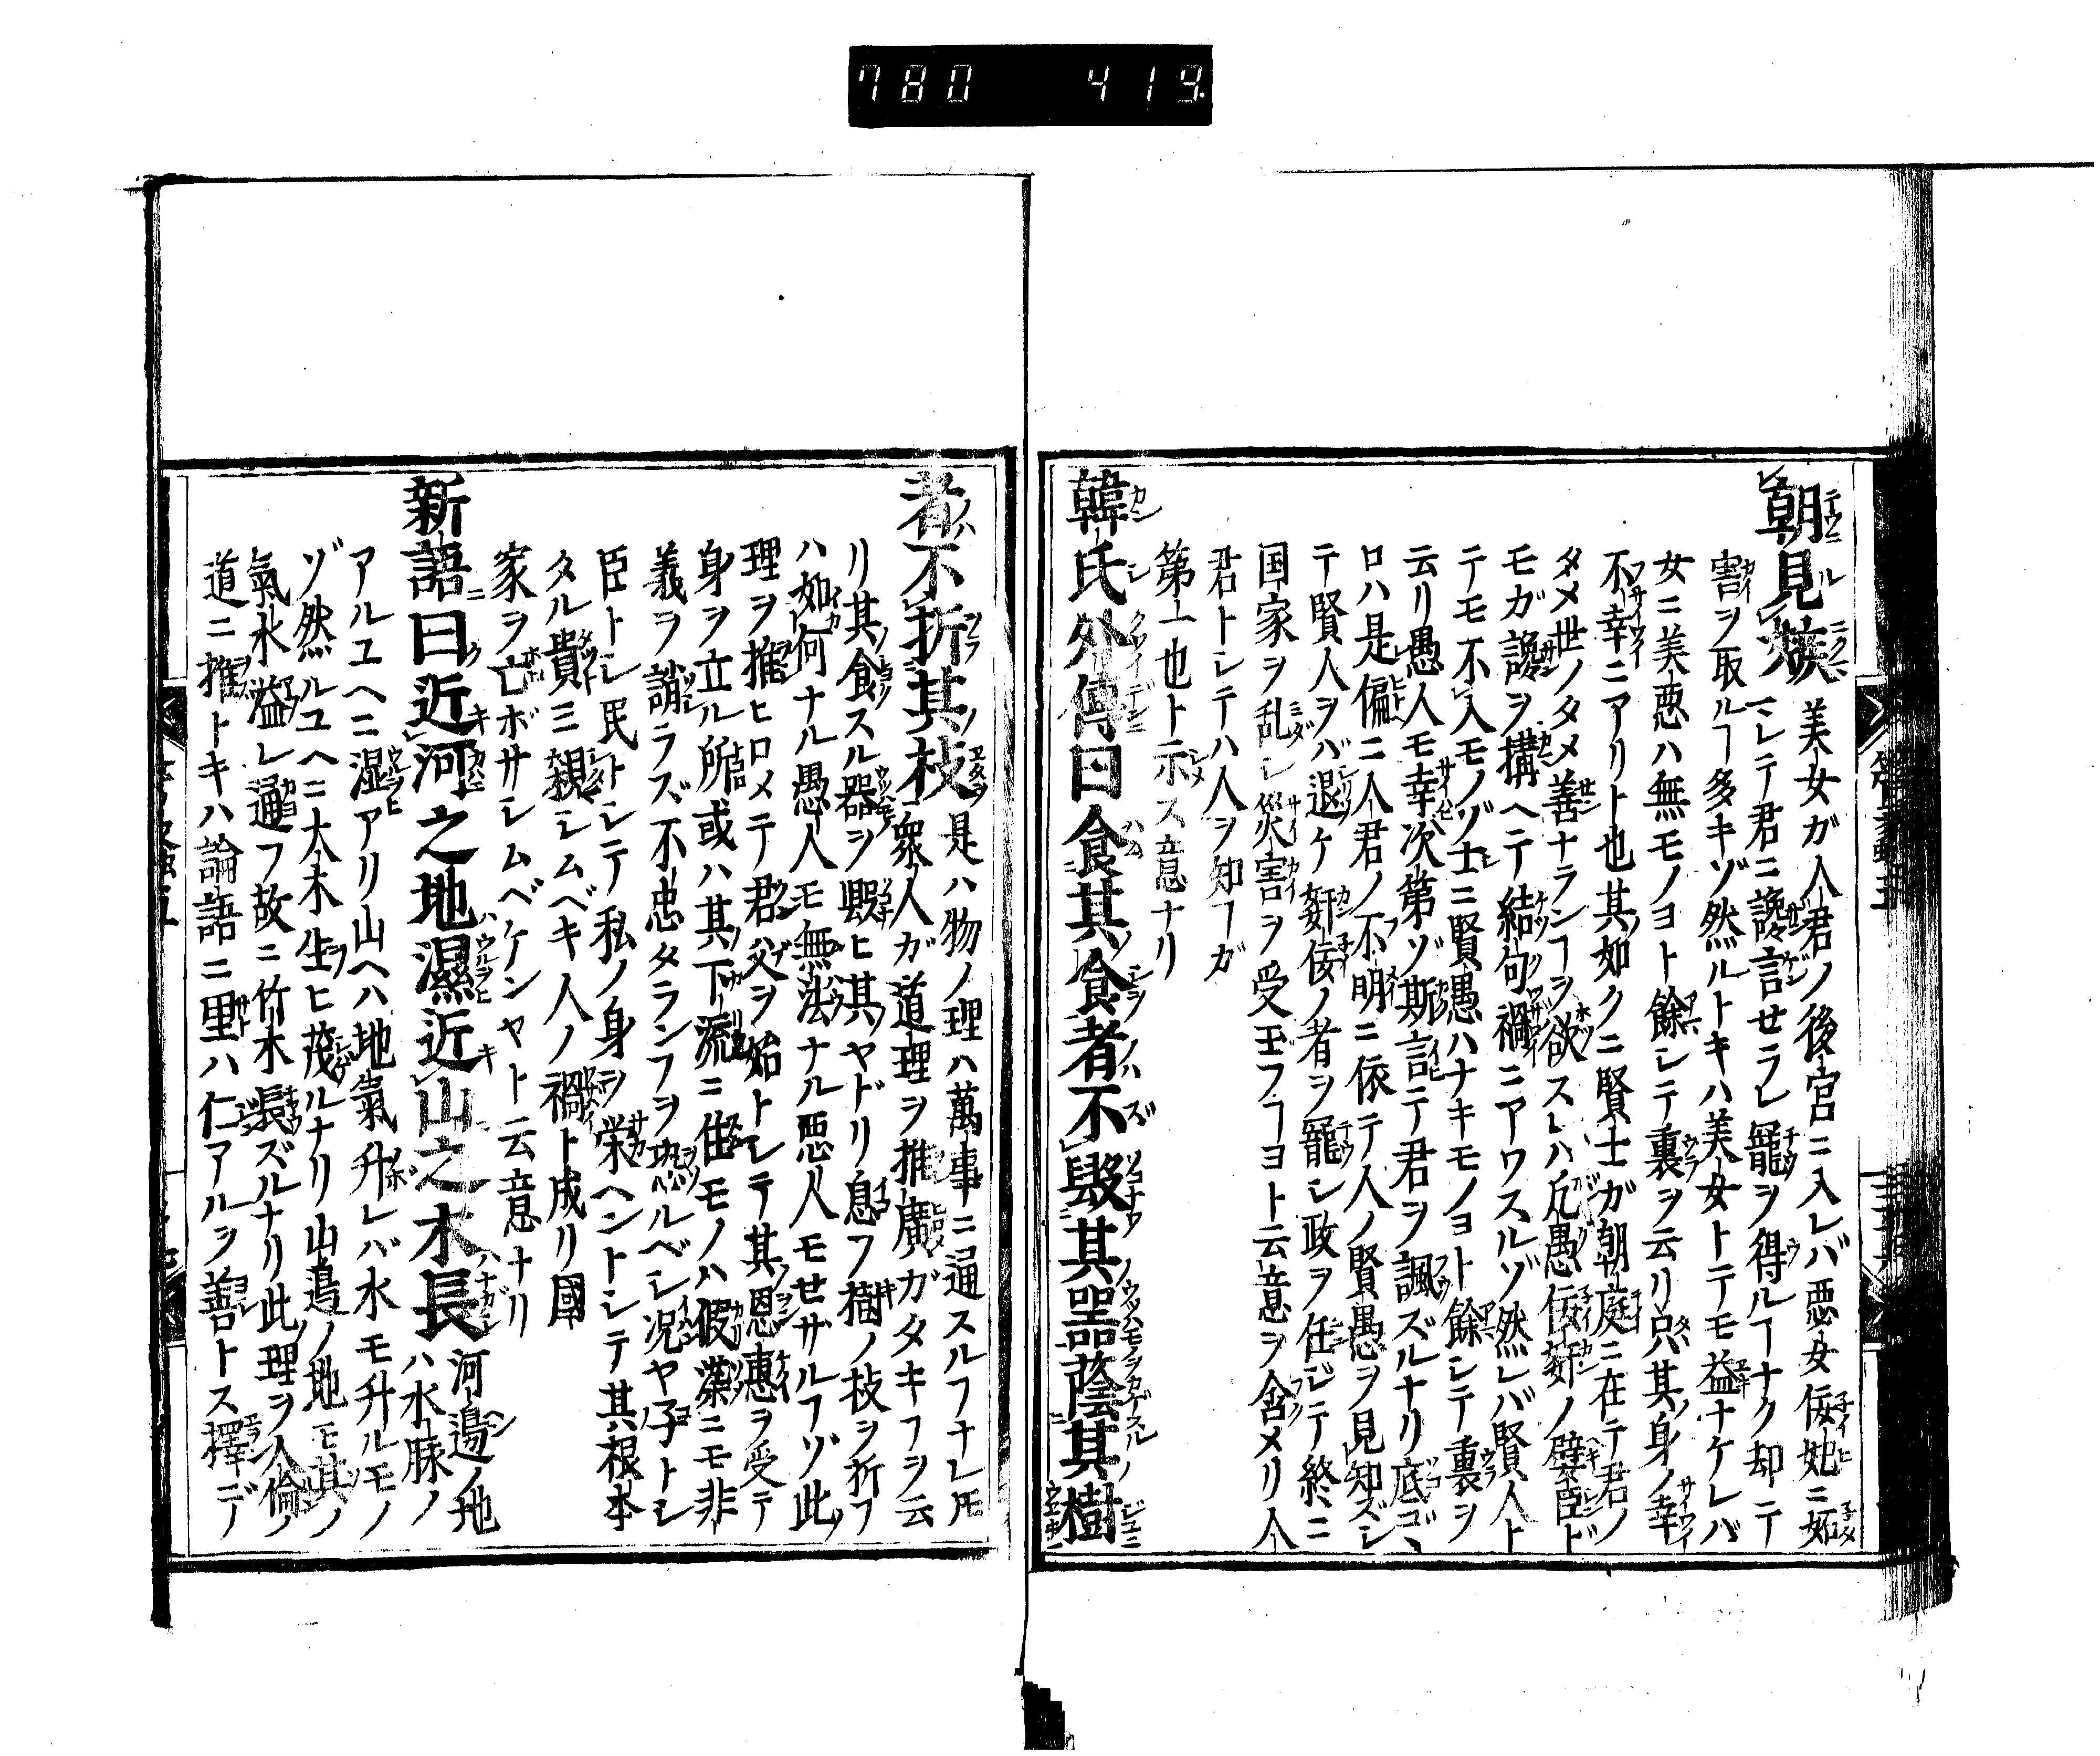 780 419
朝見嫉 美女ガ人君ノ後宮ニ入レバ悪女佞妣ニ妬
マレテ君ニ讒言セラレ寵ヲ得ルヿナク却テ
害ヲ取ルヿ多キゾ然ルトキハ美女トテモ益ナケレバ
女ニ美悪ハ無モノヨト餘レテ裏ヲ云リ只其身ノ幸
不幸ニアリト也其如クニ賢士ガ朝庭ニ在テ君ノ
タメ世ノタメ善ナランヿヲ欲スレハ凡愚佞姧ノ嬖臣ド
モガ讒ヲ搆ヘテ結句禍ニアワスルゾ然レバ賢人ト
テモ不入モノゾ士ニ賢愚ハナキモノヨト餘レテ裏ヲ
云リ愚人モ幸次第ゾ斯言テ君ヲ諷ズルナリ底ゴヽ
ロハ是偏ニ人君ノ不明ニ依テ人ノ賢愚ヲ見知ズシ
テ賢人ヲバ退ケ姧佞ノ者ヲ寵シ政ヲ任ジテ終ニ
国家ヲ乱レ災害ヲ受玉フヿヨト云意ヲ含メリ人
君トシテハ人ヲ知ヿガ
第一也ト示ス意ナリ
韓氏外傳曰食其食者不毀其器蔭其樹
者不折其枝 是ハ物ノ理ハ萬事ニ通スルヿナレ𪜈
衆人ガ道理ヲ推廣ガタキヿヲ云
リ其食スル器ヲ毀ヒ其ヤドリ息フ樹ノ枝ヲ折ヿ
ハ如何ナル愚人モ無法ナル悪人モセザルヿゾ此
理ヲ推ヒロメテ君父ヲ始トシテ其恩惠ヲ受テ
身ヲ立ル所或ハ其下流ニ住モノハ假染ニモ非
義ヲ謝ラズ不忠タランヿヲ恐ルベシ况ヤ子トシ
臣トレ民トレテ私ノ身ヲ栄ヘントシテ其根本
タル貴ミ親シムベキ人ノ禍ト成リ國
家ヲ亡ボサレムベケンヤト云意ナリ
新語曰近河之地濕近山之木長 河邉ノ地
ハ水脉ノ
アルユヘニ湿アリ山ヘハ地氣升レバ水モ升ルモノ
ゾ然ルユヘニ大木生ヒ茂ルナリ山邉ノ地モ其ノ
氣水溢レ通フ故ニ竹木長ズルナリ此理ヲ人倫ノ
道ニ推トキハ論語ニ里ハ仁アルヲ善トス擇デ